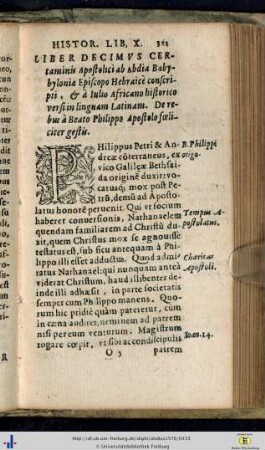 HISTOR. LIB. X. 311
LIBER DECIMVS CER-
taminis Apostolici ab Abdia Baby-
bylonia Episcopo Hebraicè conscri-
ptì, & à Iulio Africano historico
versi in linguam Latinam. De re-
bus à Beato Philippo Apostolo fœli-
citer gestis.
PHilippus Petri & An-
dreæ cōterraneus, ex
vico Galilææ Bethsai-
da originē duxit: vo-
catusq; mox post Pe-
trū, demū ad Aposto-
latus honorē peruenit. Qui vt socium
haberet conuersionis, Nathanaelem
quendam familiarem ad Christū du-
xit, quem Christus mox se agnouisse
testatus est, sub ficu antequam à Phi-
lippo illi esset adductus. Quod admi-
ratus Nathanael: qui nunquam anteà
viderat Christum, haud illibenter de-
inde illi adhæsit, in parte societatis
semper cum Philippo manens. Quo-
rum hic pridiè quàm pateretur, cum
in cœna audiret, neminem ad patrem
nisi per eum venturum: Magistrum
rogare cœpit, vt sibi ac condiscipulis
O 3 patrem
B. Philippi
origo.
Tempus A-
postolatus.
Charitas
Apostoli.
Ioan. 14.
R
© Universitätsbibliothek Freiburg